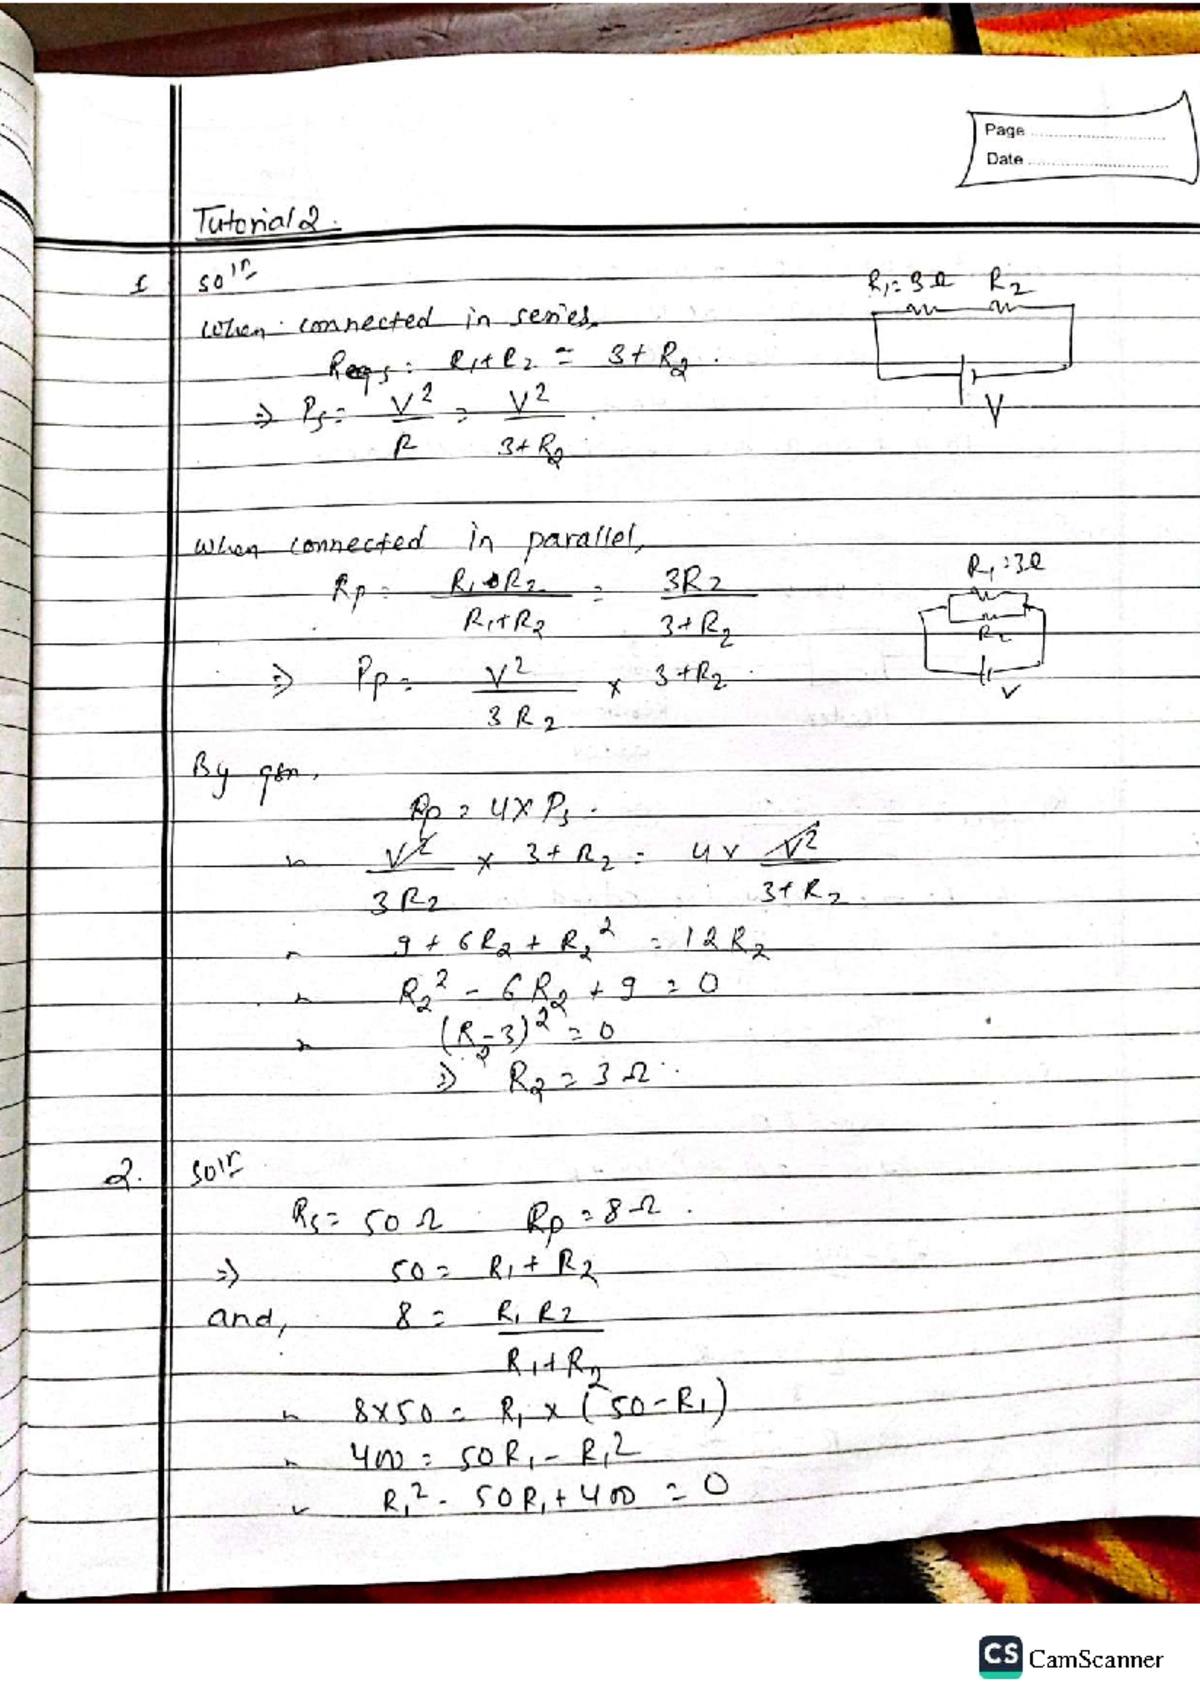 Page
Date
Tutorial 2.
1 soln
R1=3Ω R2
When connected in series,
Reqs = R1+R2 = 3+R2.
⇒ Ps = V²/R = V²/3+R2
V
When connected in parallel,
R1=3Ω
Rp = R1·R2/R1+R2 = 3R2/3+R2
R2
⇒ Pp = V²/3R2 × 3+R2
V
By qsn,
Pp = 4×Ps.
V²/3R2 × 3+R2 = 4× V²/3+R2
9+6R2+R2² = 12R2
R2² - 6R2 + 9 = 0
(R2-3)² = 0
⇒ R2 = 3Ω
2. soln
Rs = 50Ω Rp = 8Ω.
⇒ 50 = R1+R2
and, 8 = R1R2/R1+R2
8×50 = R1×(50-R1)
400 = 50R1 - R1²
R1² - 50R1 + 400 = 0
CS CamScanner